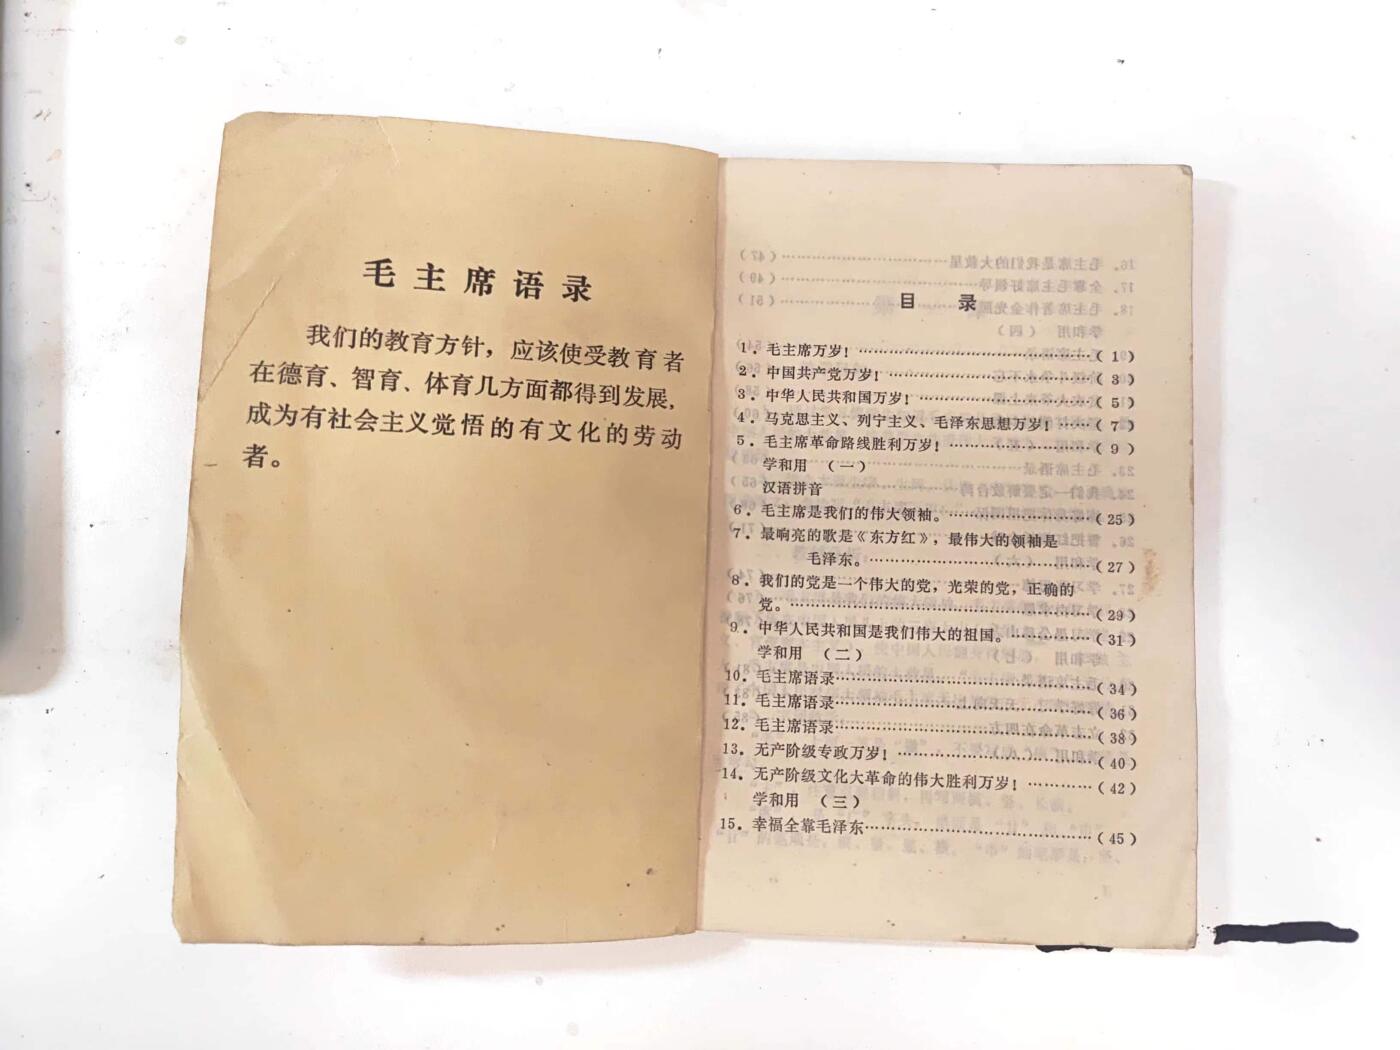 毛主席语录
我们的教育方针，应该使受教育者
在德育、智育、体育几方面都得到发展，
成为有社会主义觉悟的有文化的劳动
者。
目 录
1．毛主席万岁！……………………………（1）
2．中国共产党万岁！………………………（3）
3．中华人民共和国万岁！…………………（5）
4．马克思主义、列宁主义、毛泽东思想万岁！……（7）
5．毛主席革命路线胜利万岁！……………（9）
学和用 （一）
汉语拼音
6．毛主席是我们的伟大领袖。……………（25）
7．最响亮的歌是《东方红》，最伟大的领袖是
毛泽东。……………………………（27）
8．我们的党是一个伟大的党，光荣的党，正确的
党。…………………………………（29）
9．中华人民共和国是我们伟大的祖国。…………（31）
学和用 （二）
10．毛主席语录………………………………（34）
11．毛主席语录………………………………（36）
12．毛主席语录………………………………（38）
13．无产阶级专政万岁！……………………（40）
14．无产阶级文化大革命的伟大胜利万岁！…………（42）
学和用 （三）
15．幸福全靠毛泽东…………………………（45）